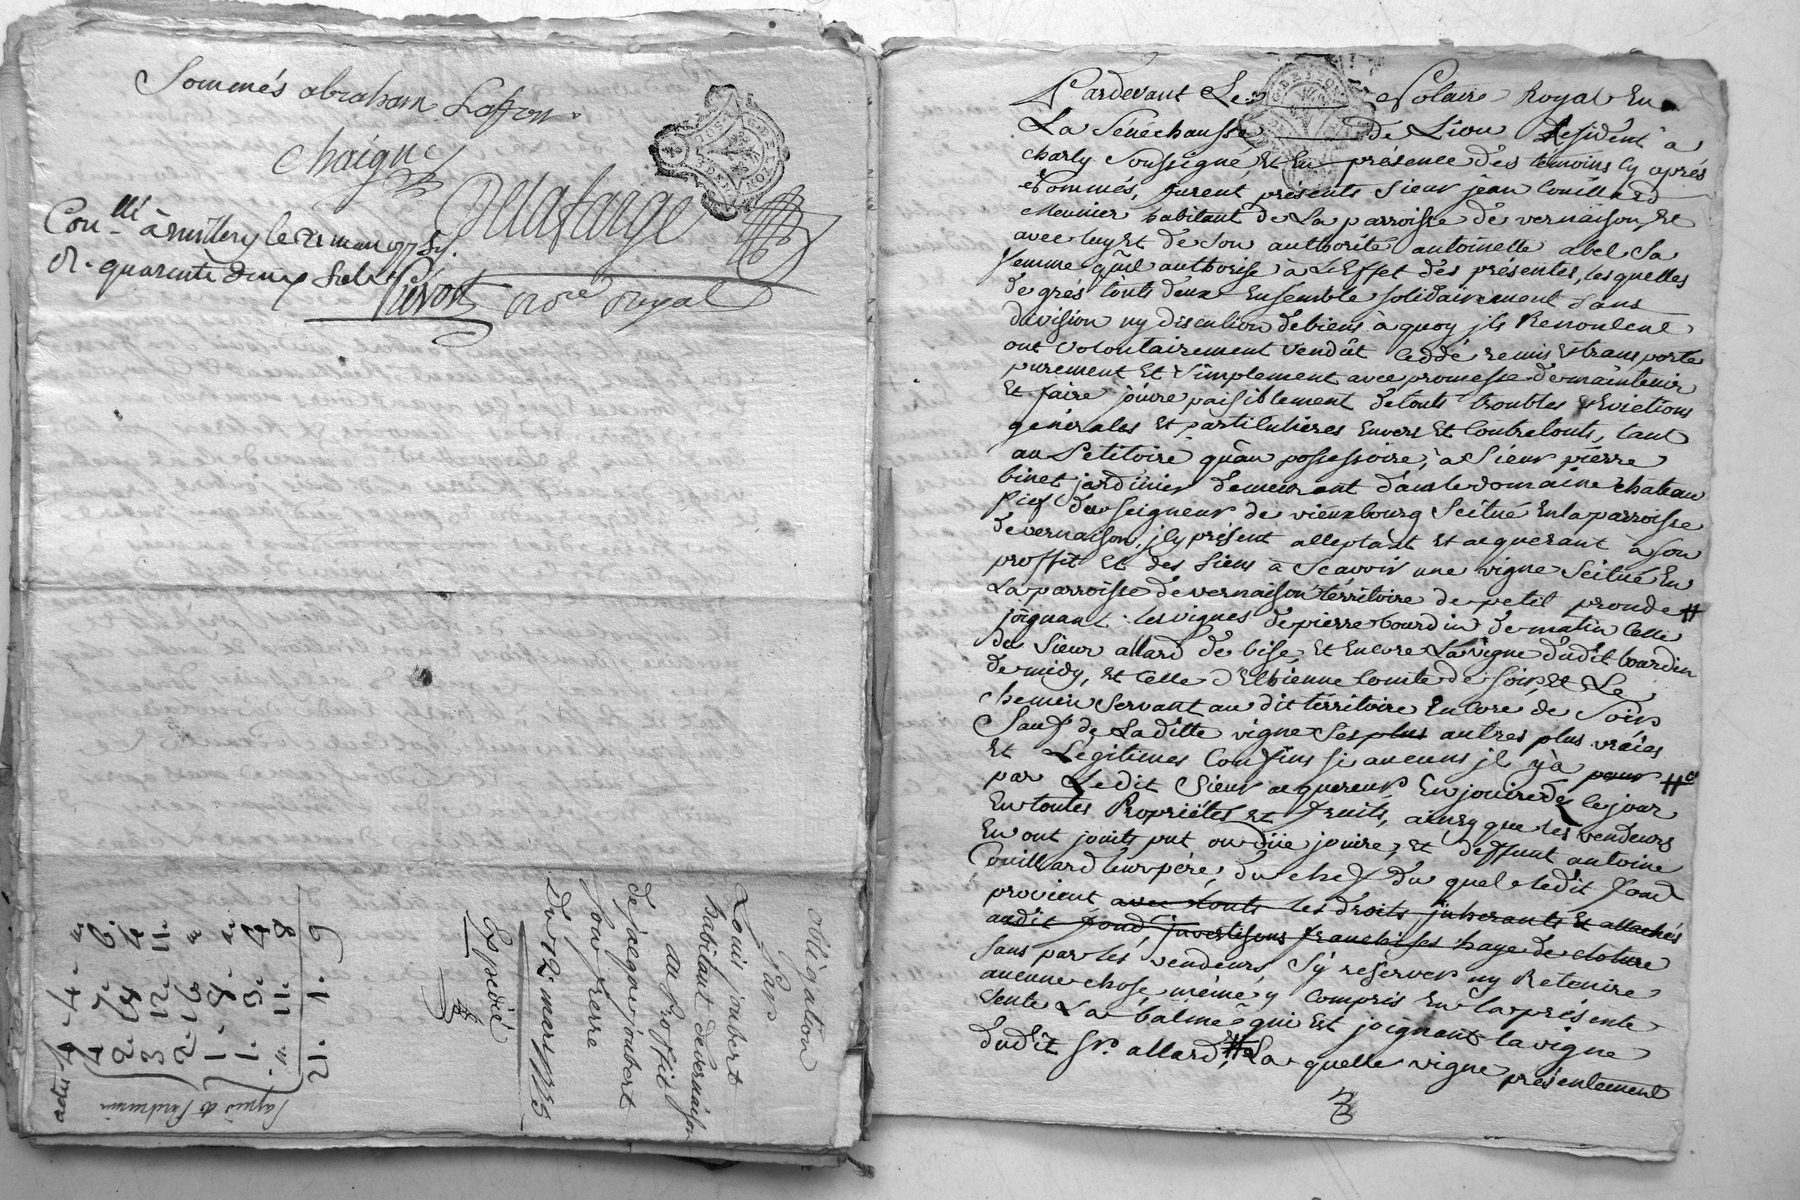 Sommés abraham Laffon
chaigne
Delafarge
Con.lle à millery le 21 mars
R. quarente deux sols
Pérost no.re royal
obligation
par
Louis joubert
habitant de vernaison
au proffit
de jacques joubert
son frere
Du 12 mars
Expedié
Pardevant Le Notaire Royal En
La Sénéchaussé de Lion Résident à
charly Soussigné, et En présence des temoins cy aprés
nommés, furent présents Sieur jean Couillard
Meunier habitant de La parroisse de vernaison, et
avec luy et de son authorité antoinette abel sa
femme qu'il authorise à L'Effet des présentes, lesquelles
de grés touts deux Ensemble solidairement sans
division ny discution de biens à quoy ils Renoncent
ont volontairement vendût Ceddé remis & transporté
purement Et Simplement avec promesse de maintenir
Et faire joüire paisiblement de touts troubles & Evictions
générales Et particulieres Envers Et Contre touts, tant
au Petitoire qu'au possessoire, a Sieur pierre
binet jardinier demeurant dans le domaine chateau
fief du Seigneur de vieuxbourg Scitué En la parroisse
de vernaison, icy présent acceptant Et acquerant à son
proffit Et des siens à Scavoir une vigne Scitué En
La parroisse de vernaison térritoire de petit pronde #
joignant les vignes de pierre bourdin de matin Celle
du Sieur allard de bise, Et Encore La vigne dudit bourdin
de midy, et Celle d'Etienne Comte de soir, Et Le
chemin Servant au dit térritoire Encore de Soir
Sauf de Laditte vigne Ses plus autres plus vraies
Et Légitimes Confins si aucuns il y à pour #
par Ledit Sieur acquereur En jouire des ce jour
En toutes Propriétés et fruits, ainsy que les vendeurs
En ont joüits put ou dûe jouire, Et deffunt antoine
Couillard leur pére, du chef du quel ledit fond
provient avec touts les droits inherants Et attachés
audit fond, invertisons franchises haye de cloture
sans par les vendeurs, S'y reserver ny Retenire
aucune chose meme y Compris En la présente
vente La balme qui Est joignant la vigne
dudit sr. allard, # La quelle vigne présentement